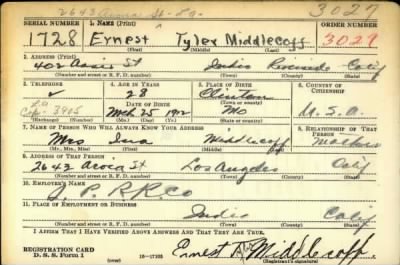 2643 Aroca St - La 3027
SERIAL NUMBER 1. NAME (Print) ORDER NUMBER
1728 Ernest Tyler Middlecoff 3027
(First) (Middle) (Last)
2. ADDRESS (Print)
402 St Indio Riverside Calif
(Number and street or R. F. D. number) (Town) (County) (State)
3. TELEPHONE 4. AGE IN YEARS 5. PLACE OF BIRTH 6. COUNTRY OF CITIZENSHIP
28 Clinton
LA DATE OF BIRTH (Town or county)
Cap. 3905 Mch 25 1912 Mo U.S.A.
(Exchange) (Number) (Mo.) (Day) (Yr.) (State or country)
7. NAME OF PERSON WHO WILL ALWAYS KNOW YOUR ADDRESS 8. RELATIONSHIP OF THAT PERSON
Mrs Ina Middlecoff Mother
(Mr., Mrs., Miss) (First) (Middle) (Last)
9. ADDRESS OF THAT PERSON
2643 Aroca St Los Angeles Calif
(Number and street or R. F. D. number) (Town) (County) (State)
10. EMPLOYER'S NAME
S. P. R.R. Co
11. PLACE OF EMPLOYMENT OR BUSINESS
Indio Calif
(Number and street or R. F. D. number) (Town) (County) (State)
I AFFIRM THAT I HAVE VERIFIED ABOVE ANSWERS AND THAT THEY ARE TRUE.
REGISTRATION CARD
D. S. S. Form 1 (over) 16-17105 Ernest Middlecoff
(Registrant's signature)